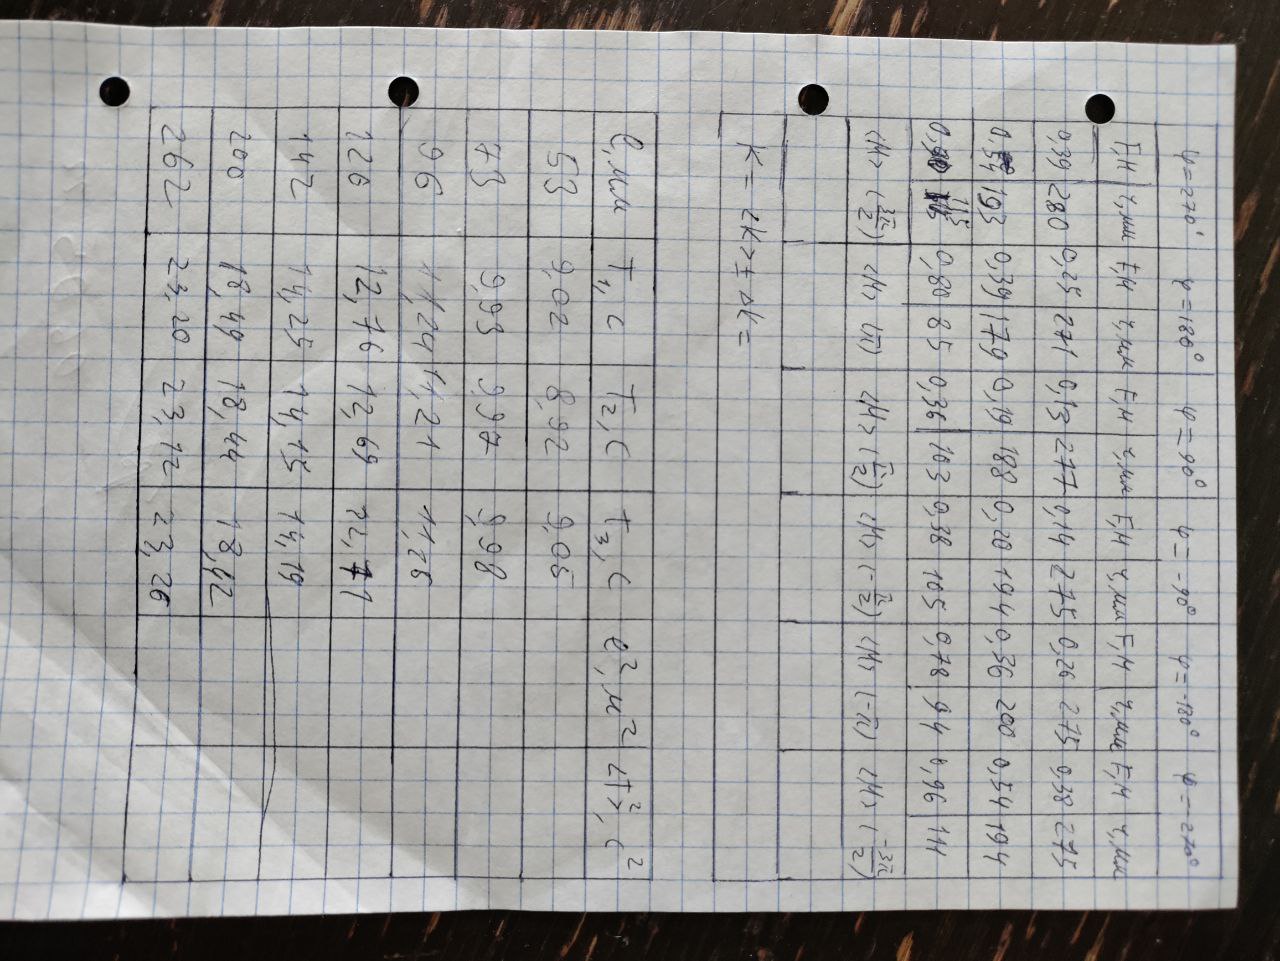 φ=270° φ=180° φ=90° φ=-90° φ=-180° φ=-270°
F,Н r,мм F,Н r,мм F,Н r,мм F,Н r,мм F,Н r,мм F,Н r,мм
0,39 280 0,25 271 0,13 277 0,14 275 0,26 275 0,38 275
0,54 193 0,39 179 0,19 188 0,20 194 0,36 200 0,54 194
115 0,80 85 0,36 103 0,38 105 0,78 94 0,96 111
<M> (3π/2) <M> (π) <M> (π/2) <M> (-π/2) <M> (-π) <M> (-3π/2)
K = <K> ± ΔK =
l, мм T₁, c T₂, c T₃, c l², м² <T>², c²
53 9,02 8,92 9,05
73 9,93 9,97 9,98
96 11,24 11,21 11,26
120 12,76 12,69 12,71
142 14,25 14,15 14,19
200 18,49 18,44 18,42
262 23,20 23,12 23,26